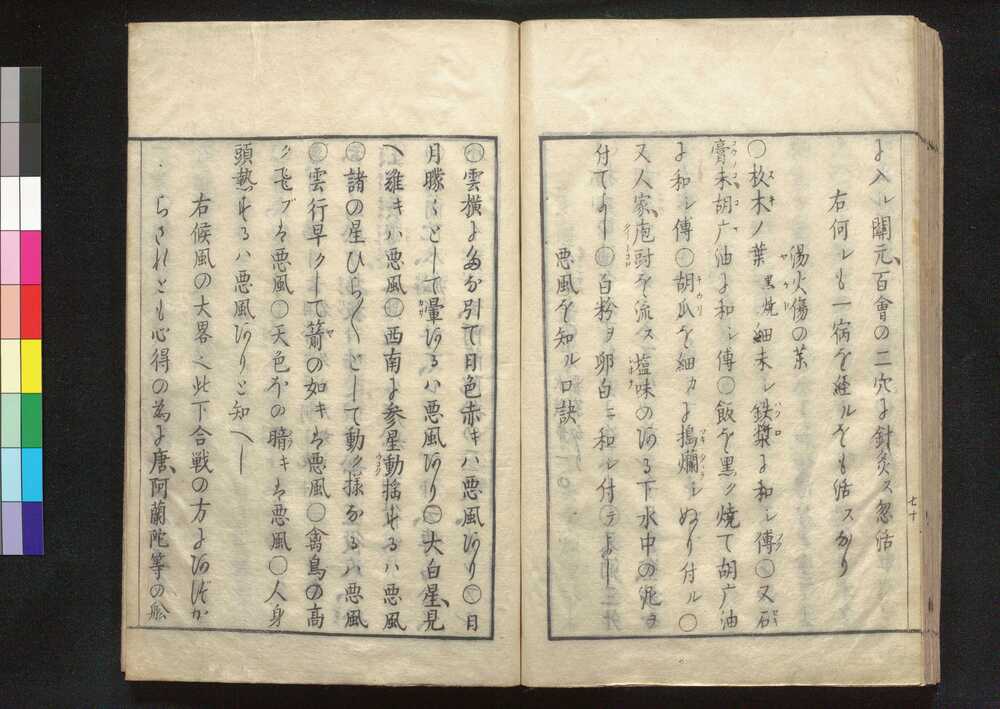 ニ入ル關元百會の二穴ニ針灸ス忽活
右何レも一宿を経ルをも活スなり
湯火傷の薬
〇杉木ノ葉黒焼細末シ鉄漿ニ和シ傅〇又石
膏末胡广油ニ和シ傅〇飯を黒ク焼て胡广油
ニ和シ傅〇胡瓜を細カニ搗爛シぬり付ル〇
又人家庖厨を流ス塩味のある下水中の泥ヲ
付てよし〇白粉ヲ卵白ニ和シ付テよし
悪風を知ル口訣
〇雲横ニ多ク引て日色赤キハ悪風あり〇日
月朦々として暈あるハ悪風あり〇大白星見
ヘ難キハ悪風〇西南ニ参星動揺するハ悪風
〇諸の星ひら〱として動ク様なるハ悪風
〇雲行早クして箭の如キも悪風〇禽鳥の高
ク飛ブも悪風〇天色外の暗キも悪風〇人身
頭熱するハ悪風ありと知へし
右候風の大畧也此下合戦の方にあづか
らされとも心得の為ニ唐阿蘭陀等の舩
七十